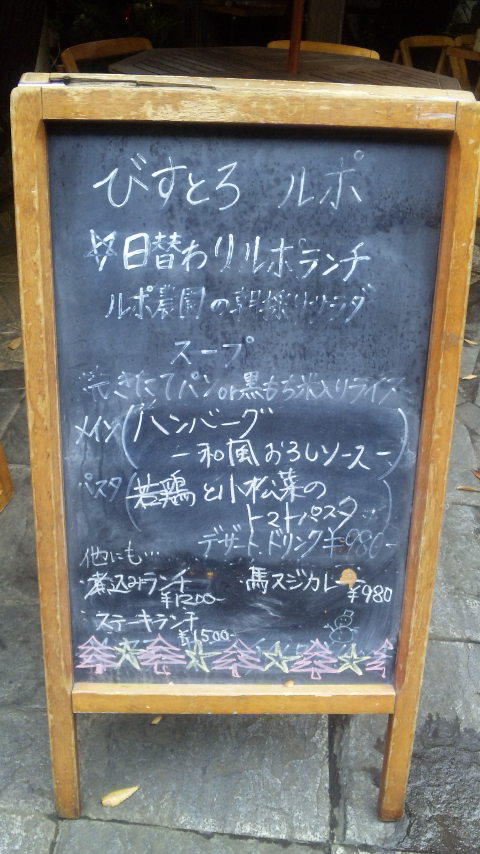 びすとろ ルポ
☆日替わりルポランチ
ルポ農園の朝採りサラダ
スープ
焼きたてパンor黒もち米入りライス
メイン(ハンバーグ
ー和風おろしソースー)
パスタ(若鶏と小松菜の
トマトパスタ)
デザート.ドリンク ¥980-
他にも…
・煮込みランチ
¥1200-
・馬スジカレー
¥980
・ステーキランチ
¥1500-